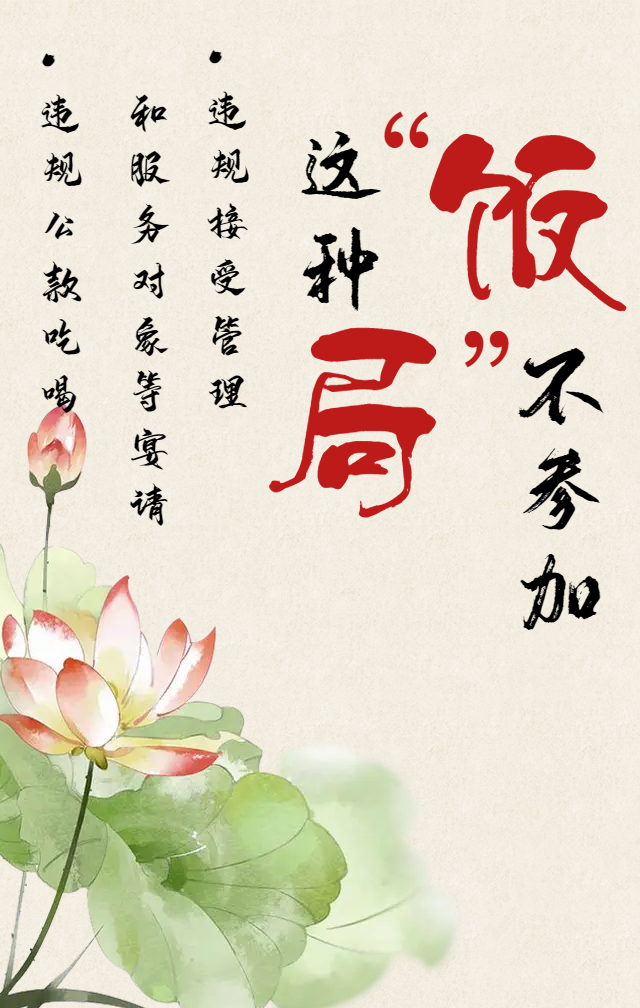 这种
“饭
局”
不参加
•违规接受管理
和服务对象等宴请
•违规公款吃喝